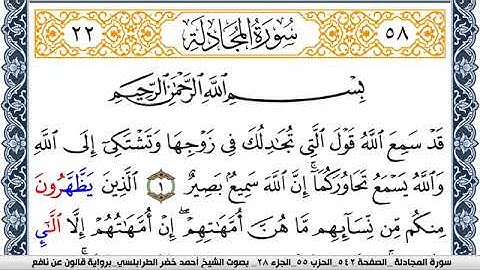 ٥٨ سُورَةُ المُجَادِلَة ٢٢
بِسْمِ اللَّهِ الرَّحْمَٰنِ الرَّحِيمِ
قَد سَّمِعَ اَللَّهُ قَوْلَ اَلتِے تُجَٰدِلُكَ فِے زَوْجِهَا وَتَشْتَكِےٓ إِلَى اَللَّهِ
وَاللَّهُ يَسْمَعُ تَحَاوُرَكُمَآ إِنَّ اَللَّهَ سَمِيعُۢ بَصِيرٌ ١ اَلذِينَ يَظَّهَّرُونَ
مِنكُم مِّن نِّسَآئِهِم مَّا هُنَّ أُمَّهَٰتِهِمْ إِنْ أُمَّهَٰتُهُمْ إِلَّا اَلَّٰٓـِٔے
سورة المجادلة_ الصفحة ٥٤٢_ الحزب ٥٥_ الجزء ٢٨_ بصوت الشيخ أحمد خضر الطرابلسي_ برواية قالون عن نافع